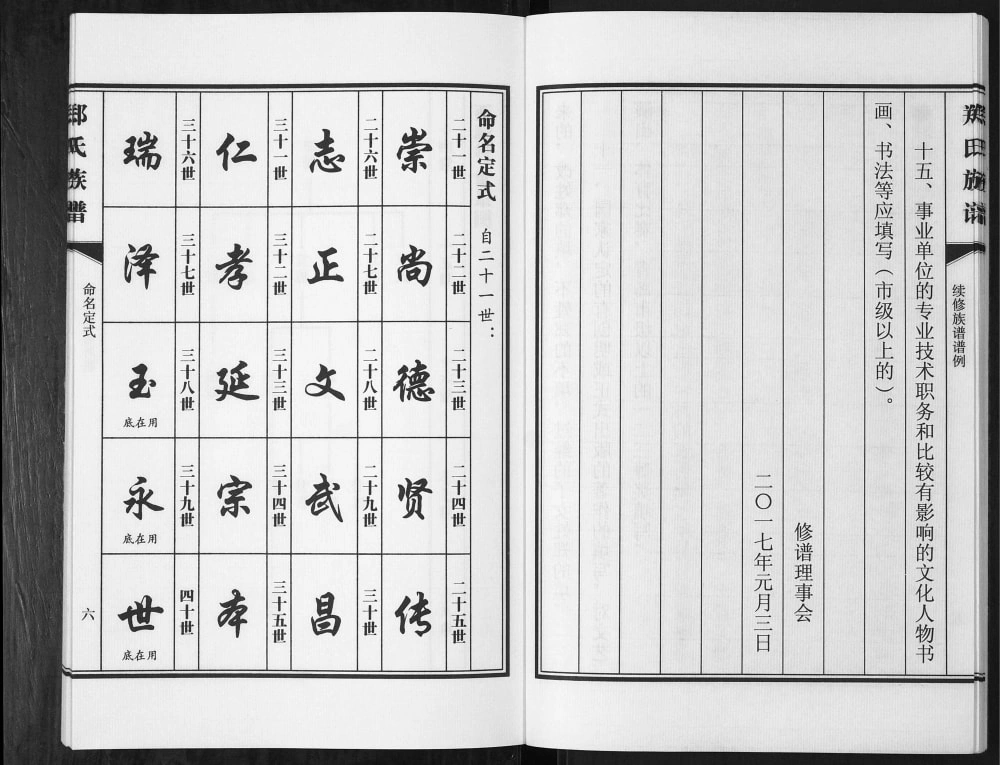 氏族谱
续修族谱谱例
十五、事业单位的专业技术职务和比较有影响的文化人物书
画、书法等应填写（市级以上的）。
修谱理事会
二〇一七年元月三日
命名定式 自二十一世：
二十一世 二十二世 二十三世 二十四世 二十五世
崇 尚 德 贤 传
二十六世 二十七世 二十八世 二十九世 三十世
志 正 文 武 昌
三十一世 三十二世 三十三世 三十四世 三十五世
仁 孝 延 宗 本
三十六世 三十七世 三十八世 三十九世 四十世
瑞 泽 玉 永 世
底在用
底在用
底在用
氏族谱
命名定式
六